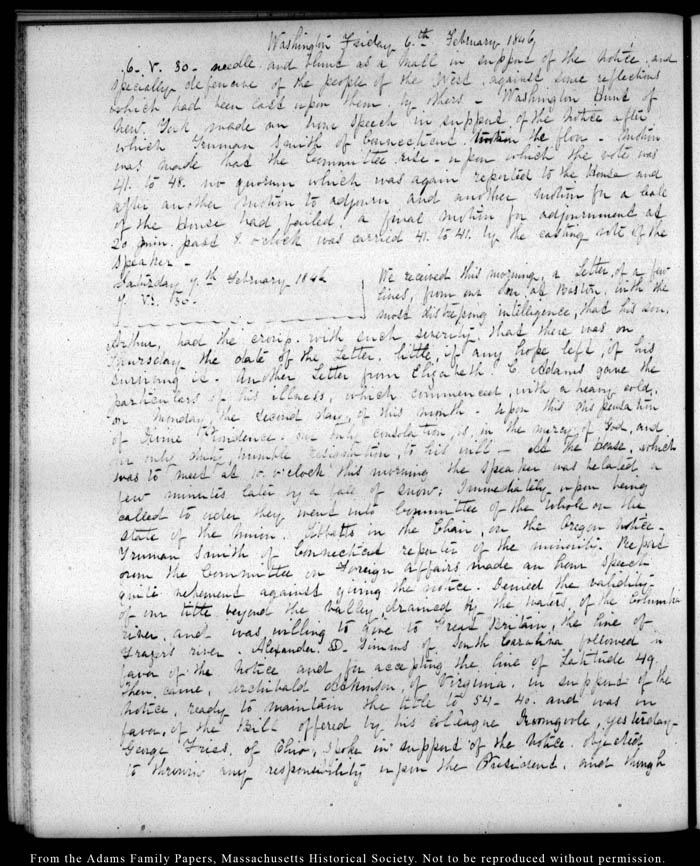 Washington Friday 6th February 1846
6. V. 30. needle and blunt as a mall in support of the notice, and
specially defensive of the people of the West, against some reflections
which had been cast upon them by others - Washington Hunt of
New York made an hour speech in support of the notice after
which Truman Smith of Connecticut the floor - Motion
was made that the Committee rise - upon which the vote was
41. to 48. no quorum which was again reported to the House and
after another motion to adjourn and another motion for a call
of the House had failed, a final motion for adjournment at
20 min. past 8. o'clock was carried 41. to 41. by the casting vote of the
Speaker -
Saturday 7th February 1846
7. V. 30.
We received this morning, a Letter, of a few
lines, from our son at Boston, with the
most distressing intelligence, that his son,
Arthur, had the croup, with such severity, that there was on
Thursday the date of the Letter, little, if any hope left, of his
surviving it. Another Letter from Elizabeth C. Adams gave the
particulars of his illness, which commenced, with a heavy cold,
on Monday, the second day, of this month. Upon this dispensation
of Divine Providence, our only consolation, is, in the mercy of God, and
our only duty, humble resignation, to his will - At the House, which
was to meet at 10. o'clock this morning the Speaker was belated, a
few minutes later by a fall of snow; Immediately upon being
called to order they went into Committee of the whole on the
state of the Union. Tibbatts in the Chair, on the Oregon notice -
Truman Smith of Connecticut reporter of the minority Report
from the Committee on Foreign affairs made an hour speech
quite vehement against giving the notice. Denied the validity
of our title beyond the valley drained by the waters, of the Columbia
River, and was willing to give to Great Britain, the line of
Frazer's river. Alexander D. Simms of South Carolina followed in
favor of the notice and for accepting the line of Latitude 49.
Then, came, Archibald Atkinson, of Virginia, in support of the
notice, ready to maintain the title to 54 - 40. and was in
favor, of the Bill offered by his colleague yesterday -
George Fries, of Ohio, spoke in support of the notice. objected
to throwing any responsibility upon the President, and though
From the Adams Family Papers, Massachusetts Historical Society. Not to be reproduced without permission.